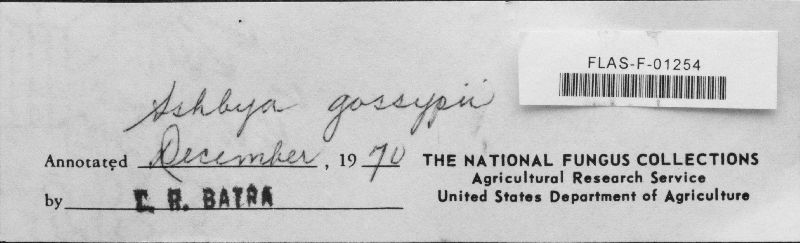 FLAS-F-01254
Ashbya gossypii
Annotated December, 1970
by L. R. BATRA
THE NATIONAL FUNGUS COLLECTIONS
Agricultural Research Service
United States Department of Agriculture